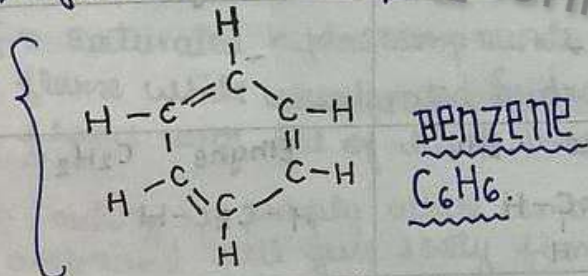 H
C
H-C C-H
C C-H
H C
H
Benzene
C6H6.